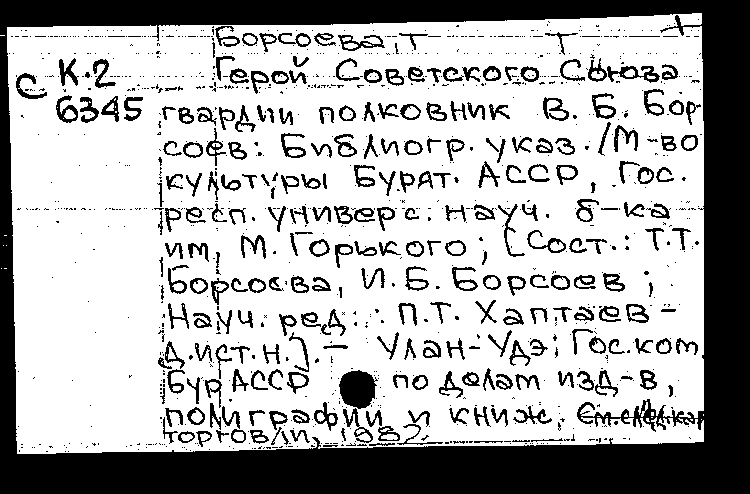 Борсоева, Т Т
С К.2 Герой Советского Союза
6345 гвардии полковник В. Б. Бор
соев: Библиогр. указ. /М-во
культуры Бурят. АССР, Гос.
респ. универс. науч. б-ка
им. М. Горького; [Сост.: Т.Т.
Борсоева, И.Б. Борсоев;
Науч. ред.: П.Т. Хаптаев-
д.ист.н.].- Улан-Удэ; Гос.ком.
Бур АССР по делам изд-в,
полиграфии и книж. См.след.кар
торговли,